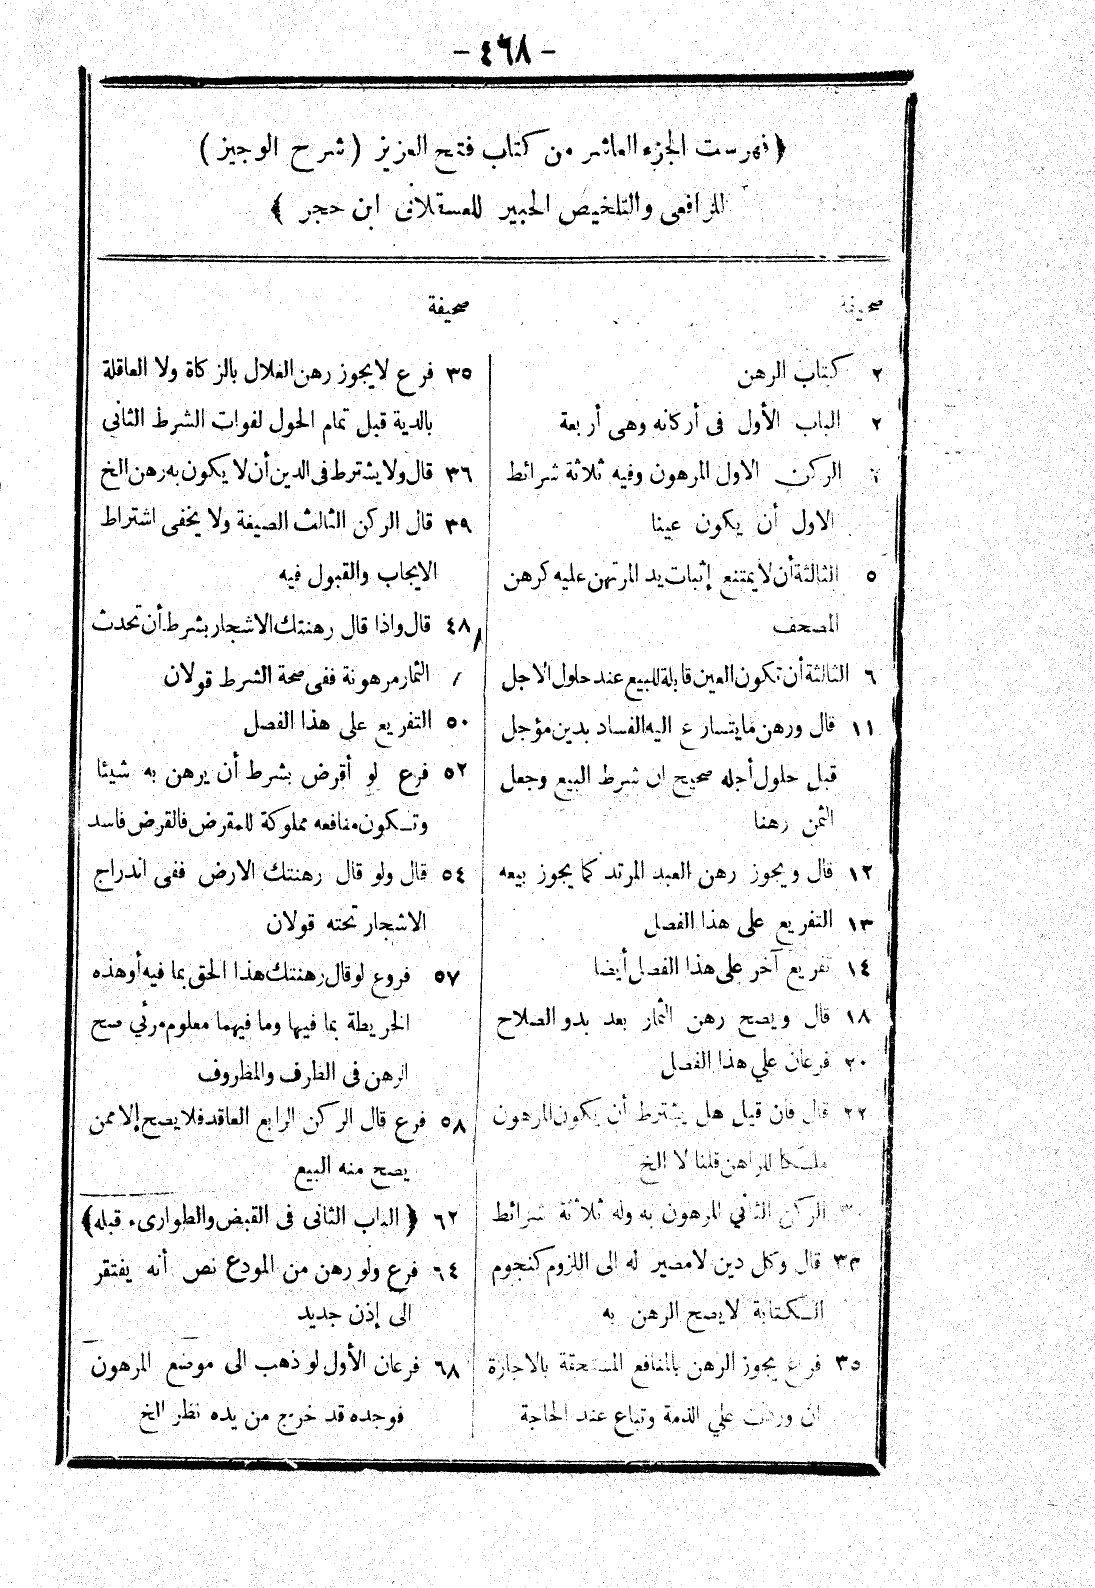 - ٤٦٨ -
﴿ فهرست الجزء العاشر من كتاب فتح العزيز ( شرح الوجيز )
للرافعى والتلخيص الحبير للعسقلانى ابن حجر ﴾
صحيفة
٢ كتاب الرهن
٢ الباب الأول فى أركانه وهى أربعة
الركن الاول المرهون وفيه ثلاثة شرائط
الاول أن يكون عينا
٥ الثالثة أن لا يمتنع إثبات يد المرتهن عليه كرهن
المصحف
٦ الثالثة أن تكون العين قابلة للبيع عند حلول الاجل
١١ قال ورهن ما يتسارع اليه الفساد بدين مؤجل
قبل حلول أجله صحيح ان شرط البيع وجعل
الثمن رهنا
١٢ قال ويجوز رهن العبد المرتد كما يجوز بيعه
١٣ التفريع على هذا الفصل
١٤ تفريع آخر على هذا الفصل أيضا
١٨ قال ويصح رهن الثمار بعد بدو الصلاح
٢٠ فرعان علي هذا الفصل
٢٢ قال فان قيل هل يشترط أن يكون المرهون
ملكا للراهن قلنا لا الخ
الركن الثاني المرهون به وله ثلاثة شرائط
٣٣ قال وكل دين لا مصير له الى اللزوم كنجوم
الكتابة لا يصح الرهن به
٣٥ فرع يجوز الرهن بالمنافع المستحقة بالاجارة
ان وردت علي الذمة وتباع عند الحاجة
صحيفة
٣٥ فرع لا يجوز رهن الغلال بالزكاة ولا العاقلة
بالدية قبل تمام الحول لفوات الشرط الثانى
٣٦ قال ولا يشترط فى الدين أن لا يكون به رهن الخ
٣٩ قال الركن الثالث الصيغة ولا يخفى اشتراط
الايجاب والقبول فيه
٤٨ قال واذا قال رهنتك الاشجار بشرط أن تحدث
الثمار مرهونة ففى صحة الشرط قولان
٥٠ التفريع على هذا الفصل
٥٢ فرع لو أقرض بشرط أن يرهن به شيئا
وتكون منافعه مملوكة للمقرض فالقرض فاسد
٥٤ قال ولو قال رهنتك الارض ففى اندراج
الاشجار تحته قولان
٥٧ فروع لو قال رهنتك هذا الحق بما فيه أو هذه
الخريطة بما فيها وما فيهما معلوم مرئي صح
الرهن فى الظرف والمظروف
٥٨ فرع قال الركن الرابع العاقد فلا يصح إلا ممن
يصح منه البيع
٦٢ ﴿ الباب الثانى فى القبض والطوارىء قبله ﴾
٦٤ فرع ولو رهن من المودع نص أنه يفتقر
الى إذن جديد
٦٨ فرعان الأول لو ذهب الى موضع المرهون
فوجده قد خرج من يده نظر الخ